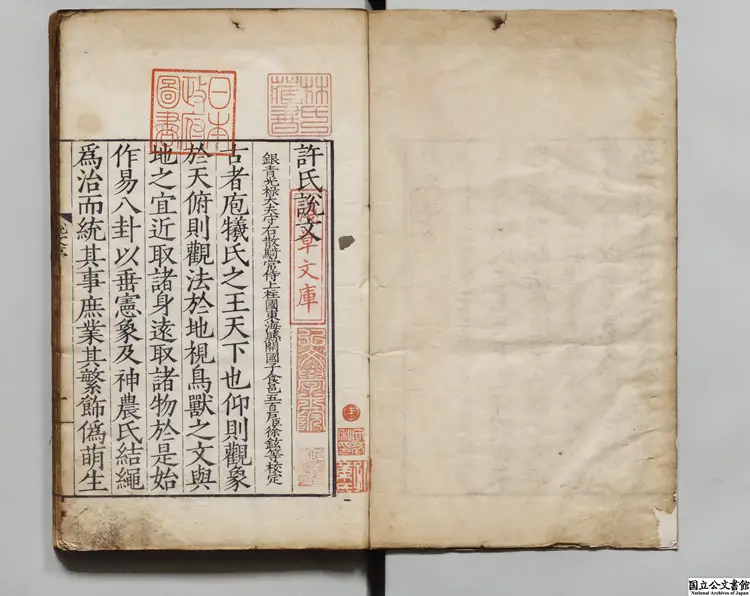 許氏說文
銀青光祿大夫守右散騎常侍上柱國東海縣開國子食邑五百戶臣徐鉉等校定
古者庖犧氏之王天下也仰則觀象
於天俯則觀法於地視鳥獸之文與
地之宜近取諸身遠取諸物於是始
作易八卦以垂憲象及神農氏結繩
爲治而統其事庶業其繁飾僞萌生
林氏藏書
日本政府圖書
章文庫
国立公文書館
National Archives of Japan